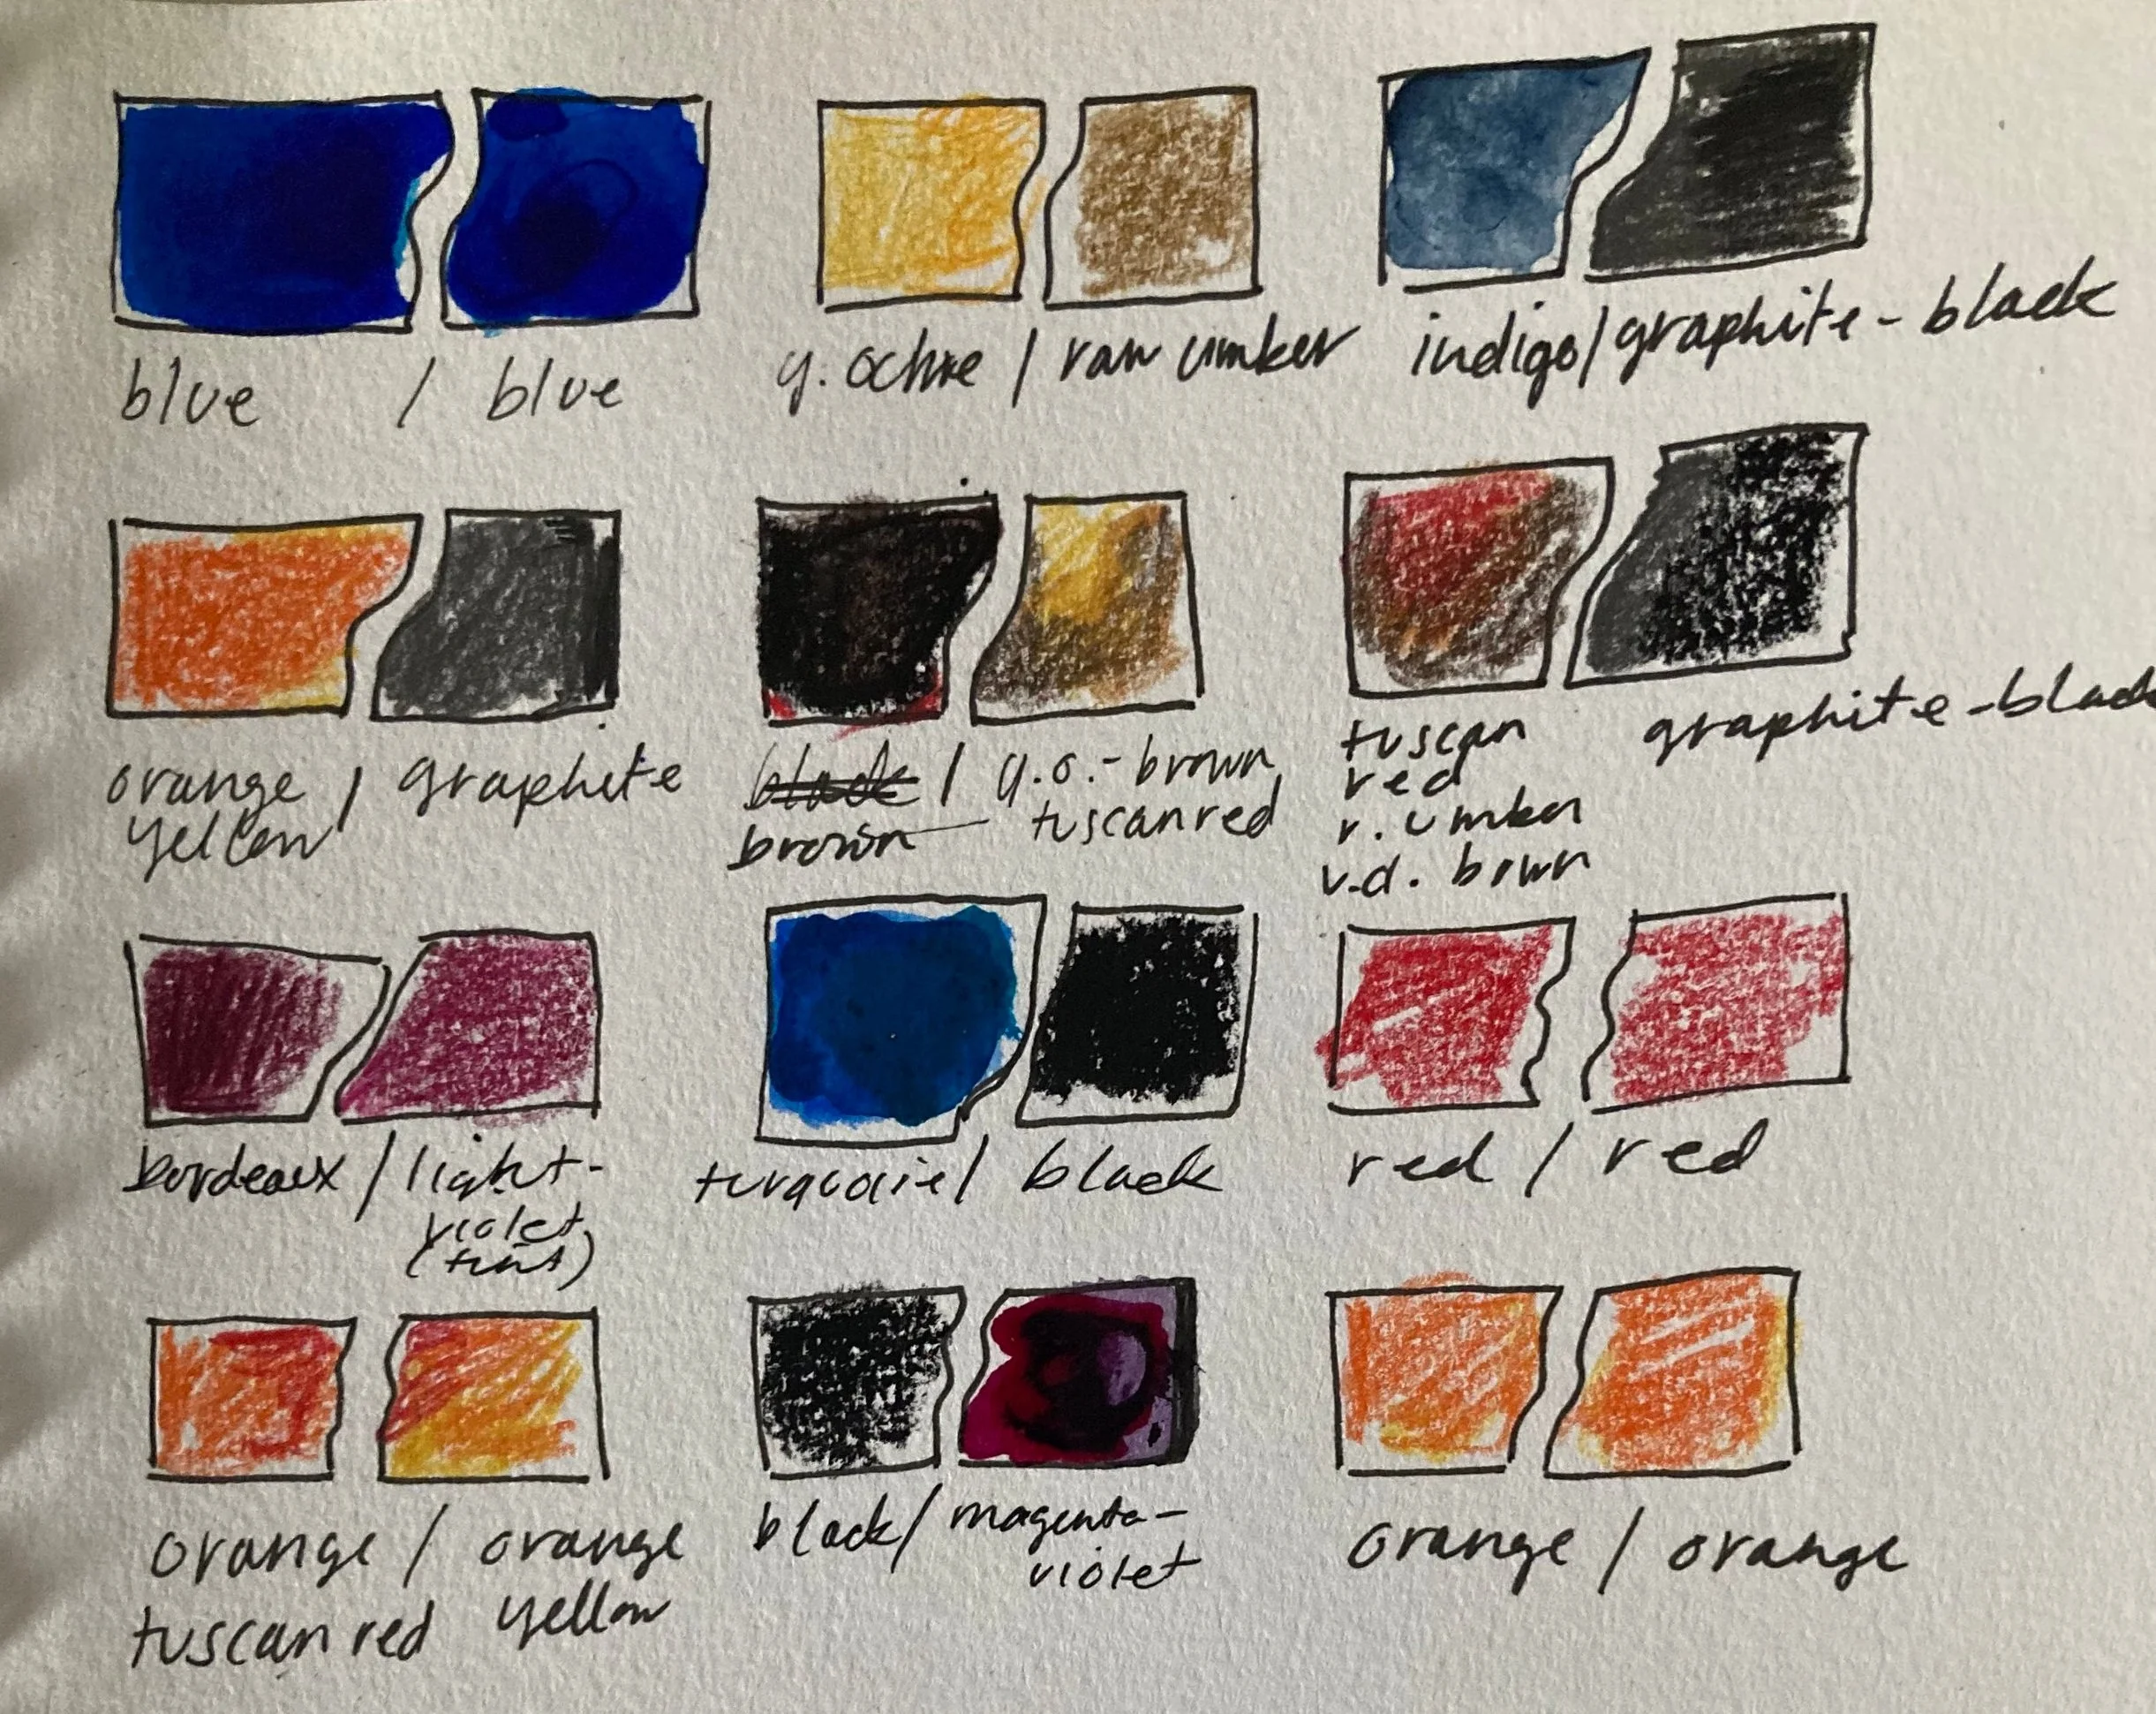 blue / blue
y. ochre / raw umber
indigo/graphite-black
orange / graphite
yellow
black / y.o.-brown
brown tuscan red
tuscan
red
r. umber
v.d. brown
graphite-black
bordeaux / light-
violet
(tint)
turquoise/ black
red / red
orange / orange
tuscan red yellow
black/ magenta-
violet
orange / orange